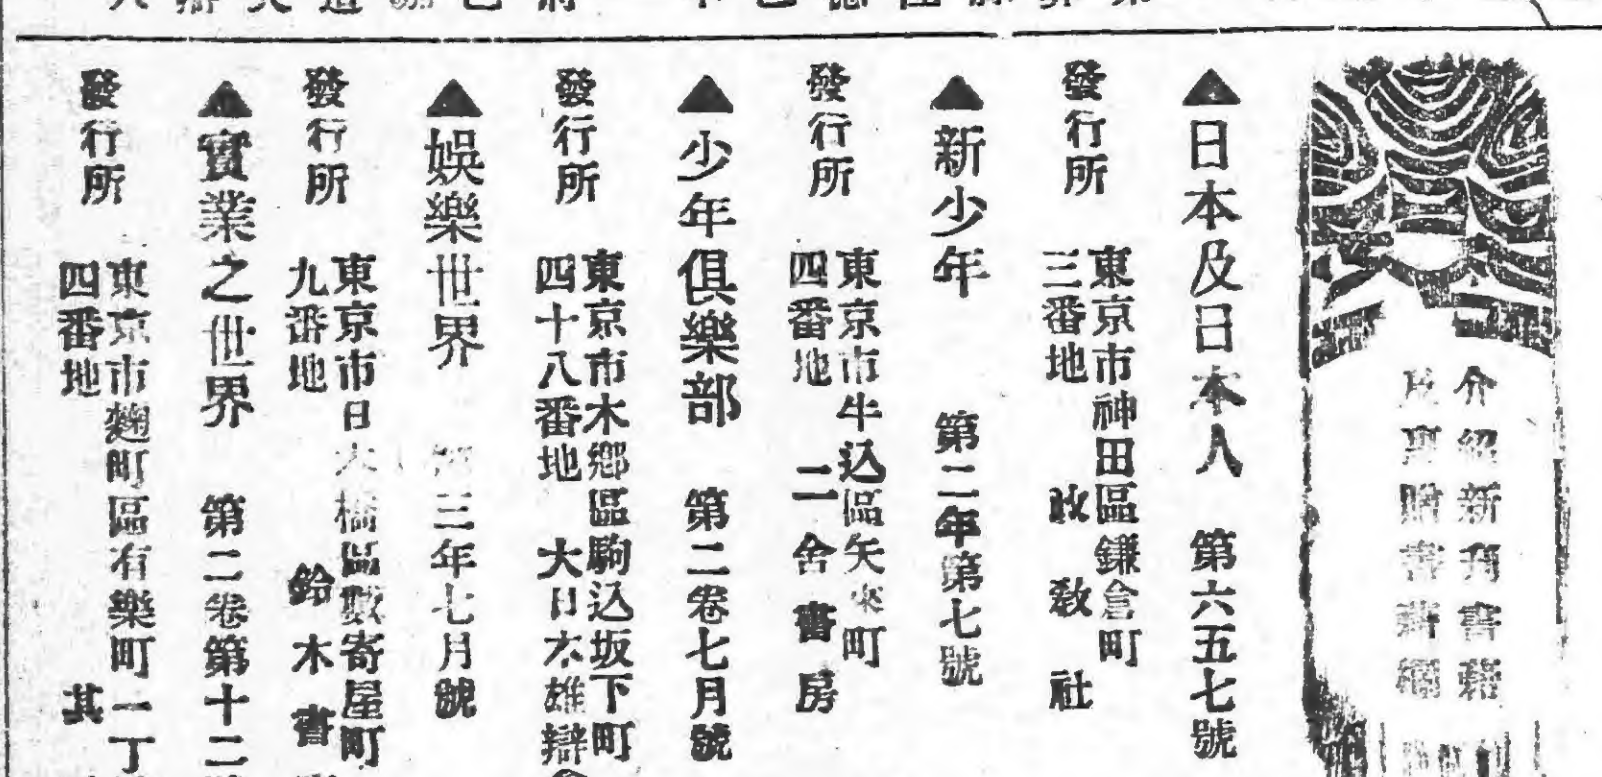 介紹新刊書籍
▲日本及日本人　第六五七號
發行所
東京市神田區鎌倉町
三番地
政教社
▲新少年　第二年第七號
發行所
東京市牛込區矢來町
四番地
二舍書房
▲少年俱樂部　第二卷七月號
發行所
東京市本鄉區駒込坂下町
四十八番地
大日本雄辯
娛樂世界　三年七月號
發行所
東京市日本橋區數寄屋町
九番地
鈴木書
▲實業之世界　第二卷第十二
發行所
東京市麴町區有樂町一丁
四番地
其